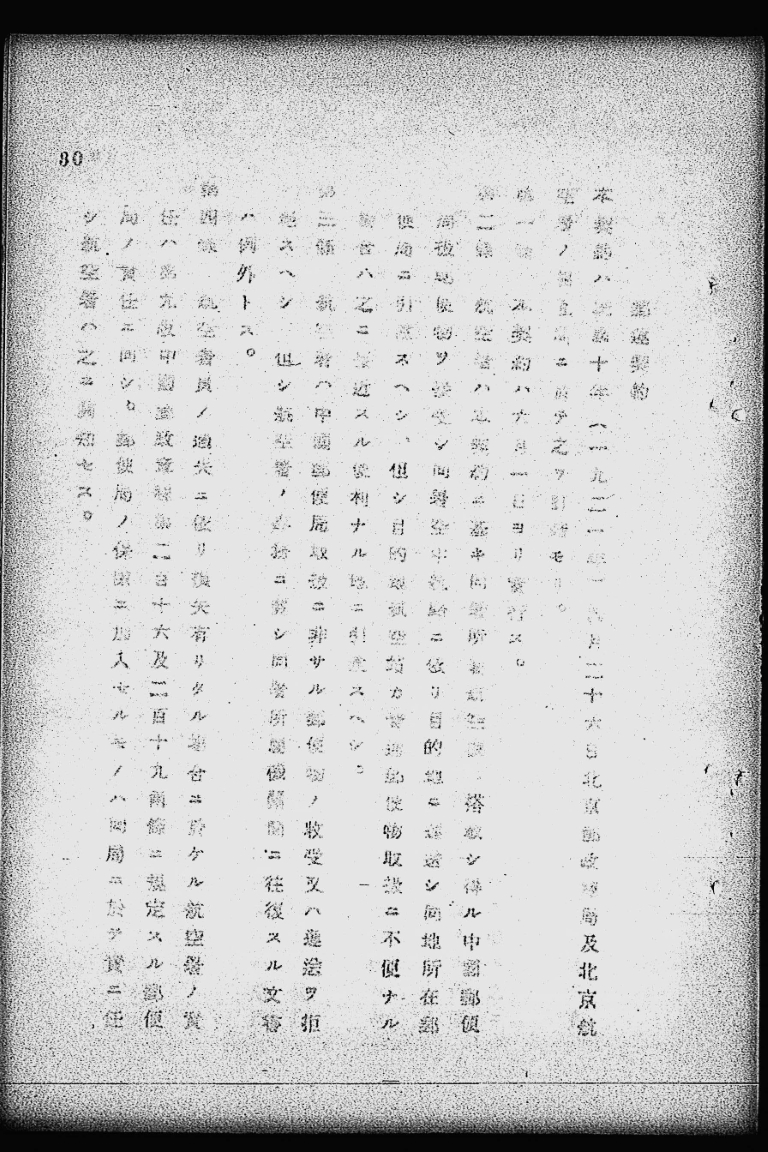 80
運送契約
本契約ハ民國十年(一九二一年)六月二十六日北京郵政總局及北京航
空署ノ間ニ於テ之ヲ訂結セリ。
第一條 本契約ハ七月一日ヨリ實行ス。
第二條 航空署ハ本契約ニ基キ同署所有 搭載シ得ル中國郵便
局被 便物ヲ接受シ同署 ニ依リ目的地ニ運送シ同地所在郵
便局ニ引渡スヘシ、但シ目的地航空站カ普通郵便物取扱ニ不便ナル
場合ハ之ニ接近スル便利ナル地ニ引渡スヘシ。
第三條 航空署ハ中國郵便局取扱ニ非サル郵便物ノ收受又ハ遞送ヲ拒
絕スヘシ 但シ航空署ノ ニ關シ同署所屬機關間ニ往復スル文書
ハ例外トス。
第四條 航空署員ノ過失ニ依リ損失有リタル場合ニ於ケル航空署ノ責
任ハ第九改中國郵政章程第二百十六及二百十九兩條ニ規定スル郵便
局ノ責任ニ同シ。郵便局ノ保險ニ加入セルモノハ同局ニ於テ責ニ任
シ航空署ハ之ニ與 セス。